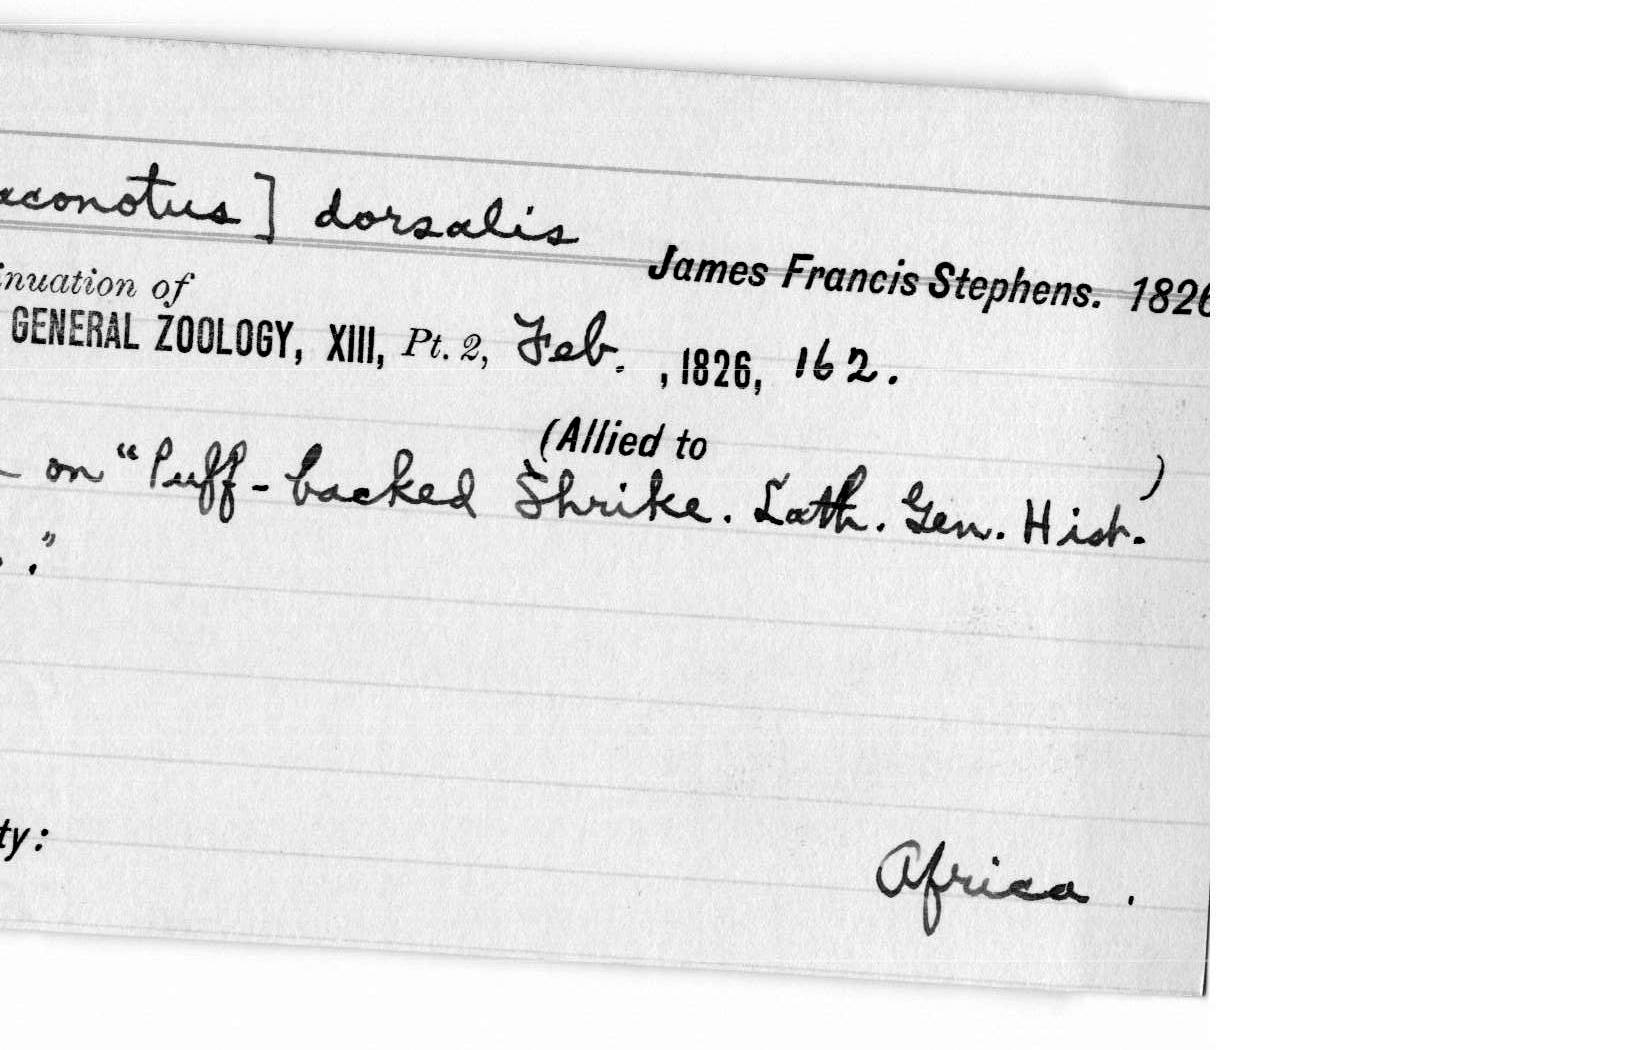 aconotus] dorsalis
James Francis Stephens. 1826
inuation of
GENERAL ZOOLOGY, XIII, Pt. 2, Feb. , 1826, 162.
(Allied to )
on "Puff-backed Shrike. Lath. Gen. Hist.
."
ty:
Africa.